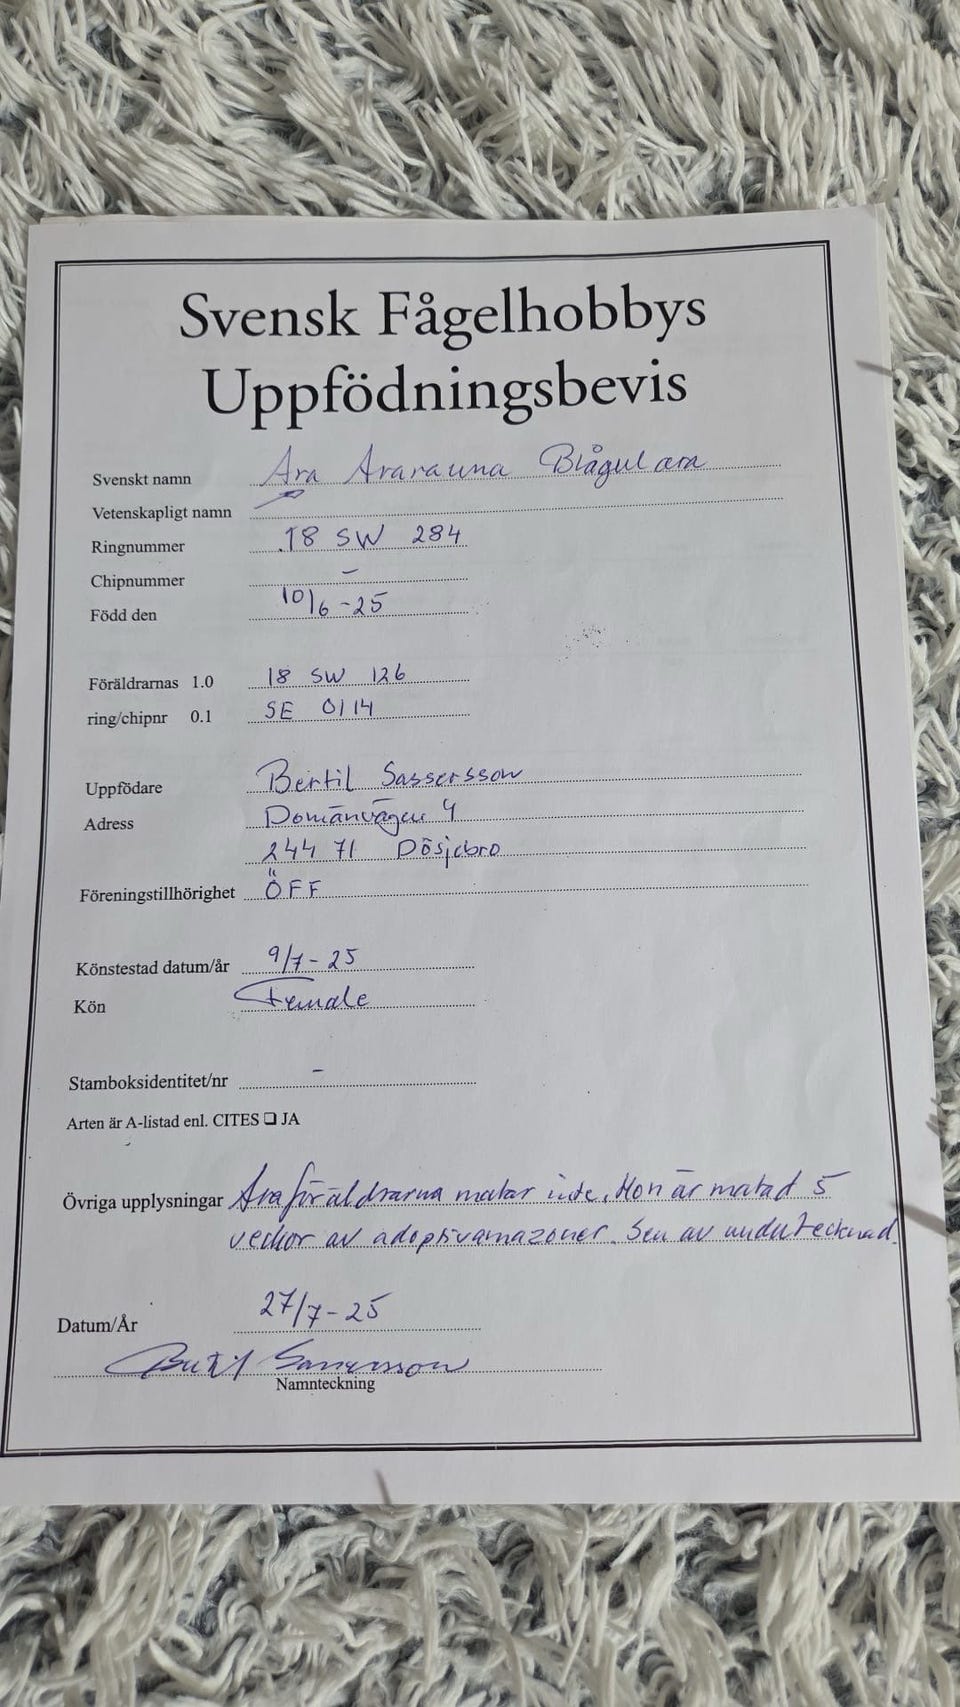 Svensk Fågelhobbys
Uppfödningsbevis
Svenskt namn Ara Ararauna Blågul ara
Vetenskapligt namn
Ringnummer 18 SW 284
Chipnummer –
Född den 10/6-25
Föräldrarnas 1.0 18 SW 126
ring/chipnr 0.1 SE 0114
Uppfödare Bertil Sassersson
Adress Domänvägen 4
244 71 Dösjebro
Föreningstillhörighet ÖFF
Könstestad datum/år 9/7-25
Kön Female
Stamboksidentitet/nr –
Arten är A-listad enl. CITES ❏ JA
Övriga upplysningar Araföräldrarna matar inte. Hon är matad 5
veckor av adoptivamazoner. Sen av undertecknad.
Datum/År 27/7-25
Bertil Sassersson
Namnteckning